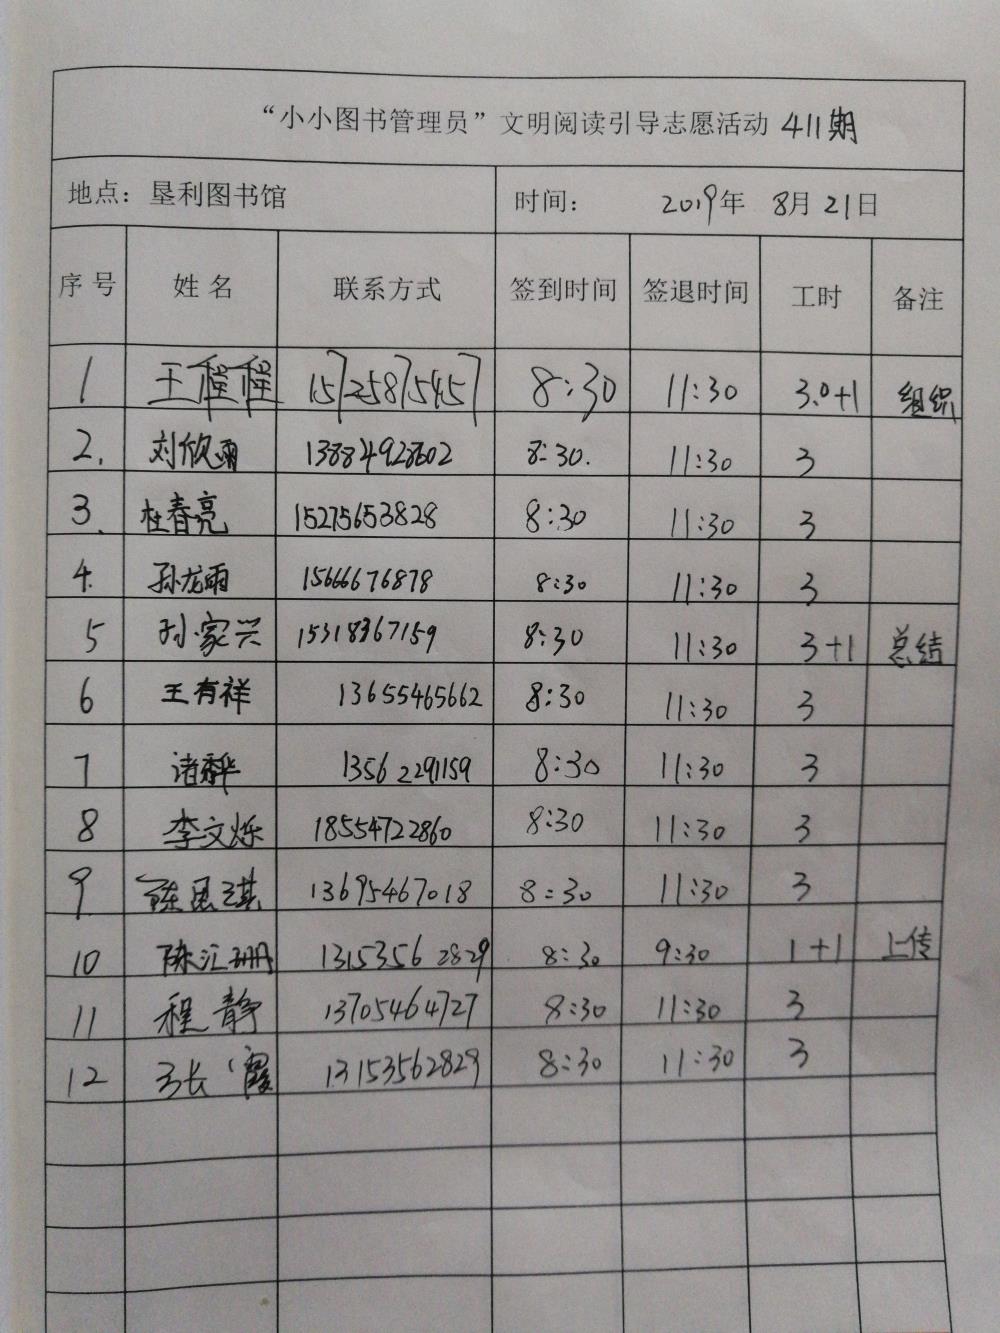 “小小图书管理员”文明阅读引导志愿活动 411期
地点：垦利图书馆 时间： 2019年 8月21日
序号 姓名 联系方式 签到时间 签退时间 工时 备注
1 王程程 15725875457 8:30 11:30 3.0+1 组织
2. 刘欣雨 13884928602 8:30. 11:30 3
3. 杜春亮 15275653828 8:30 11:30 3
4. 孙龙雨 15666676878 8:30 11:30 3
5 孙家兴 15318367159 8:30 11:30 3+1 总结
6 王有祥 13655465662 8:30 11:30 3
7 诸 13562291159 8:30 11:30 3
8 李文烁 18554722860 8:30 11:30 3
9 陈思琪 13695467018 8:30 11:30 3
10 陈汇珊 13153562829 8:30 9:30 1+1 上传
11 程静 13705464727 8:30 11:30 3
12 长霞 13153562829 8:30 11:30 3